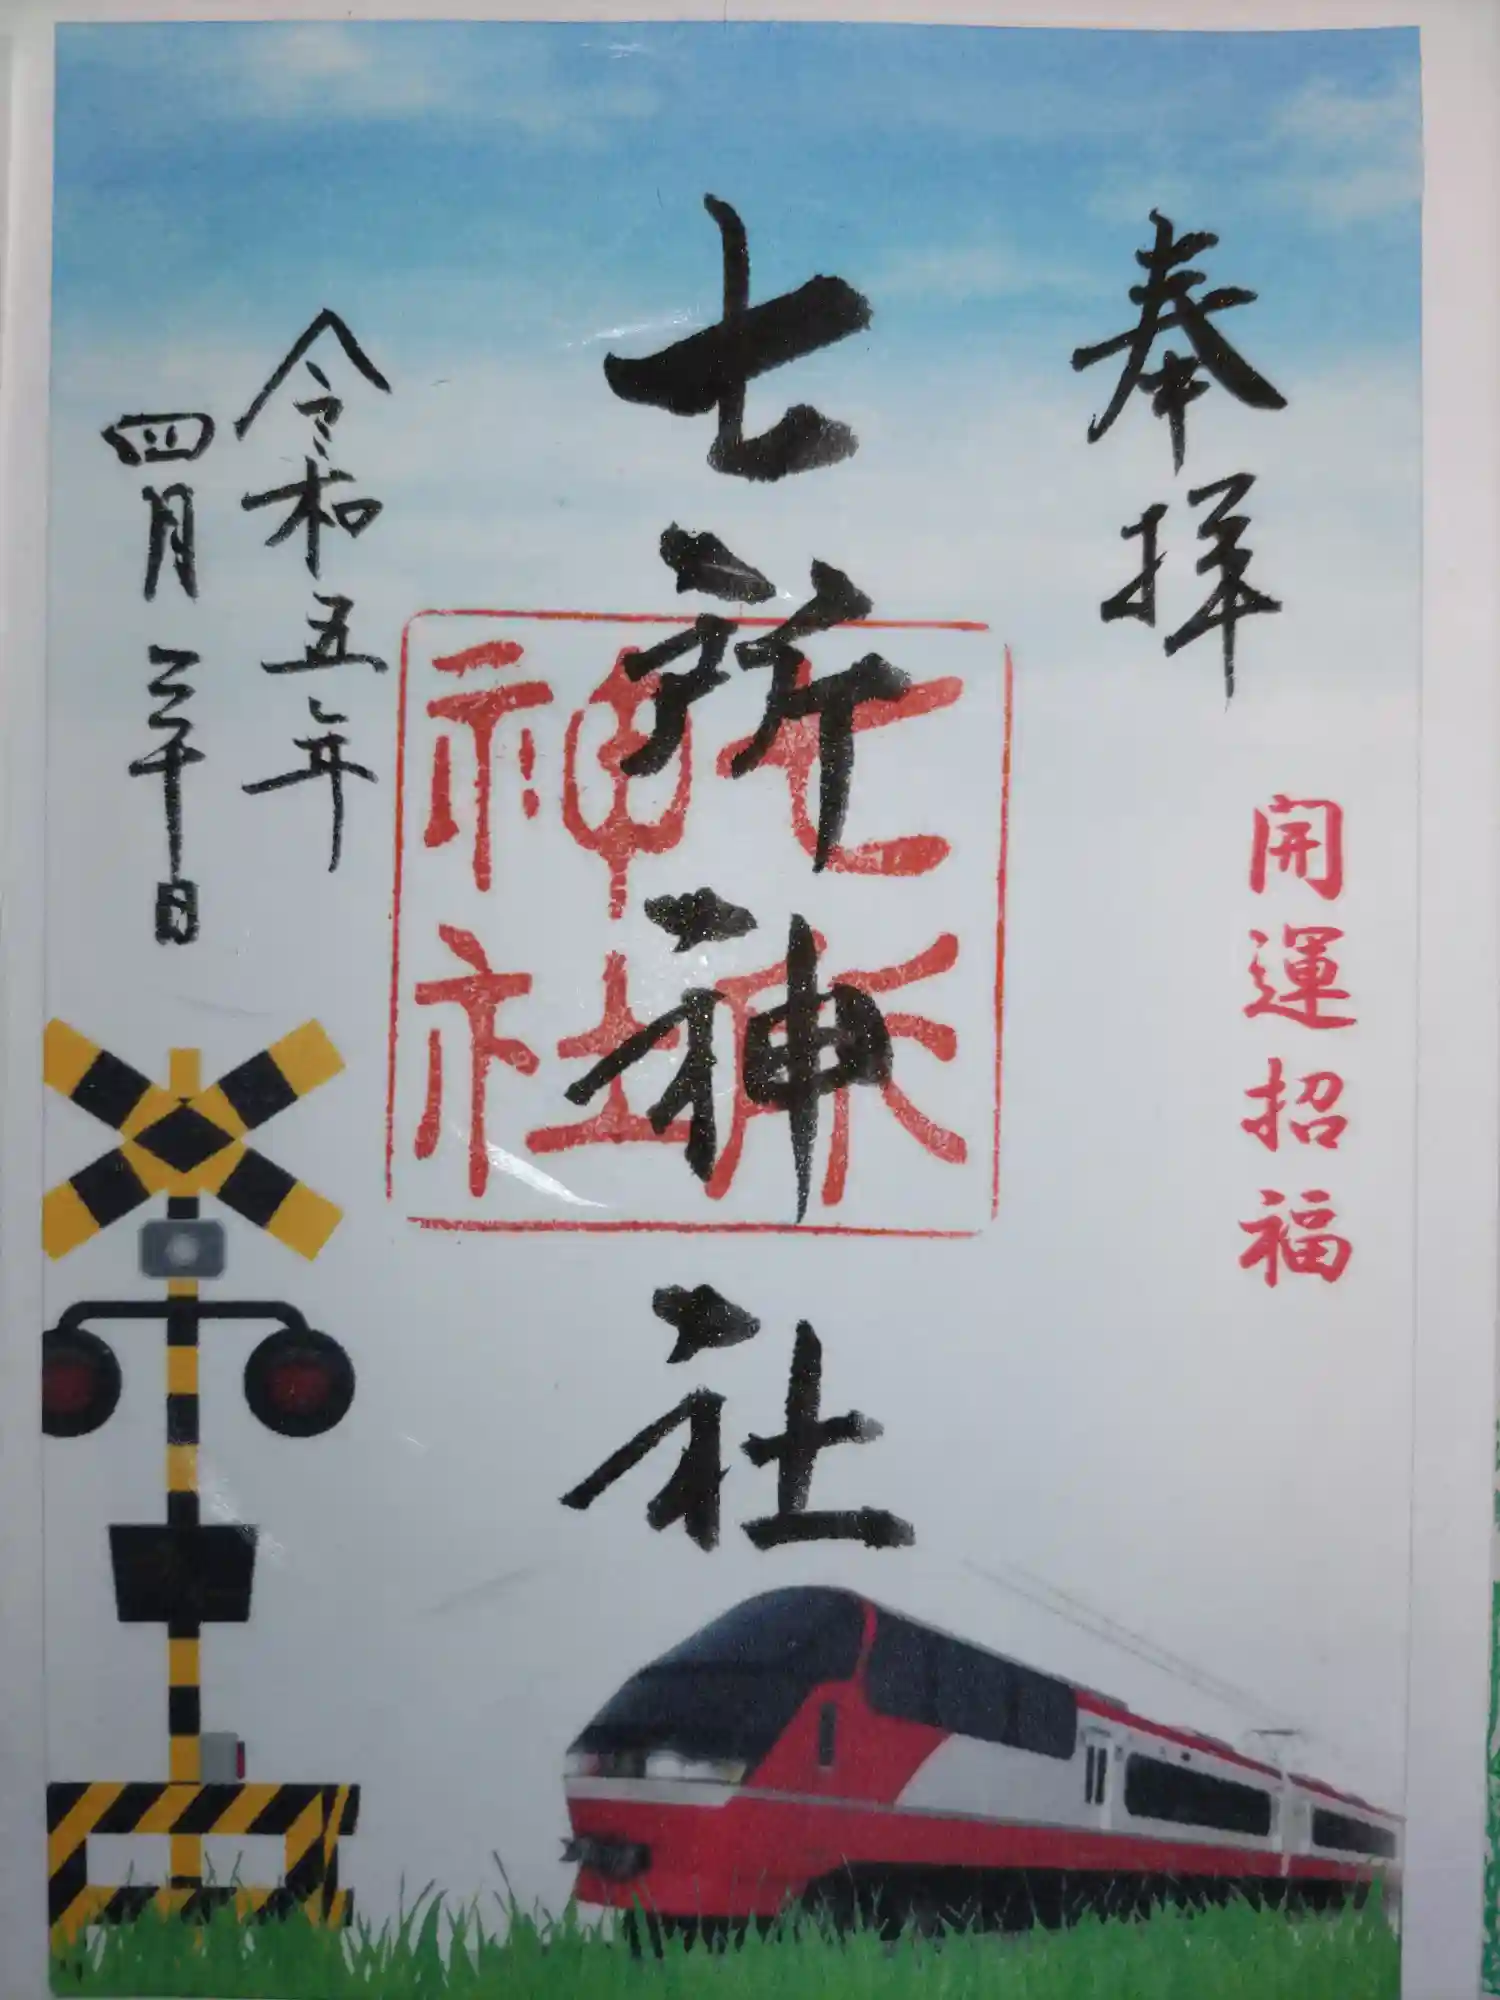 奉拝
開運招福
七所神社
七所
神社
令和五年
四月三十日